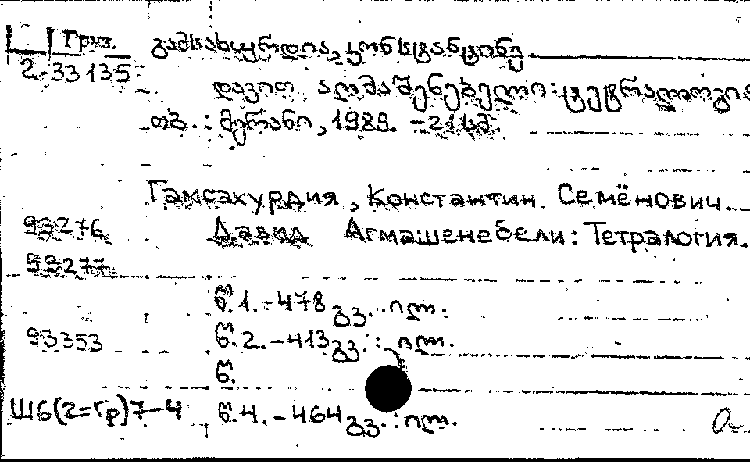 Груз. გამსახურდია, კონსტანტინე.
2-33135
დავით აღმაშენებელი: ტეტრალოგია
თბ.: მერანი, 1989. - 21 სმ.
Гамсахурдия, Константин Семёнович.
93276 Давид Агмашенебели: Тетралогия.
93277
წ.1. - 478 გვ.: ილ.
93353 წ.2. - 413 გვ.: ილ.
წ.
Ш6(2=Гр)7-4 წ.4. - 464 გვ.: ილ. а